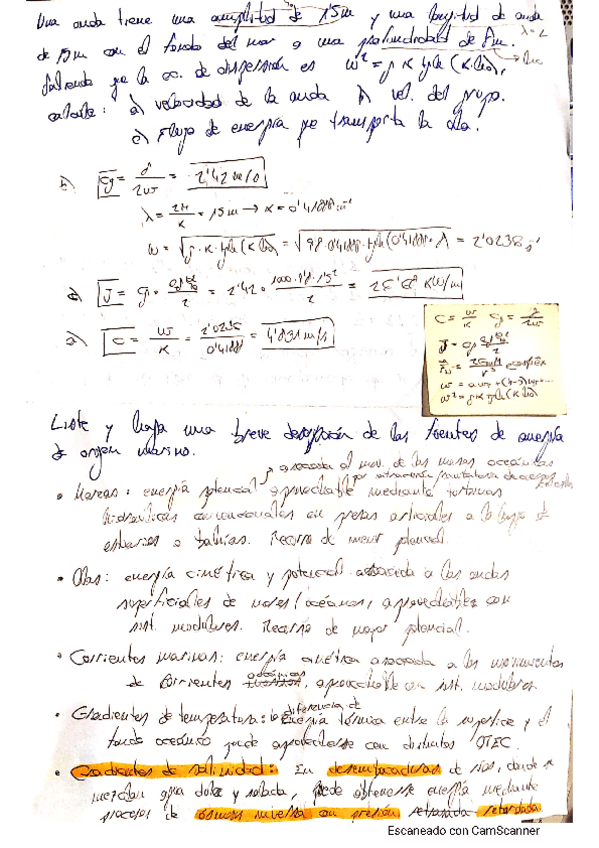 Una onda tiene una amplitud de 1'5m y una longitud de onda
de 15m con el fondo del mar a una profundidad de 8m. λ=L
Sabiendo que la ec. de dispersión es ω² = g K tgh (K·h),
calcule: a) velocidad de la onda b) vel. del grupo.
c) Flujo de energía que transporta la ola.
b) Cg = g/2ω = 2'42 m/s
λ = 2π/K = 15m → K = 0'4188 m⁻¹
ω = √(g·K·tgh(K·h)) = = 2'0238 s⁻¹
c) J = Cg · = 2'42 · 1000·9'8·1'5²/2 = KW/m
a) C = ω/K = 2'0238/0'4188 = 4'831 m/s
C = ω/K Cg = g/2ω
ω² = g K tgh (K h)
Liste y haga una breve descripción de las fuentes de energía
de origen marino.
asociada al mov. de las masas oceánicas
• Mareas: energía potencial aprovechable mediante turbinas
hidráulicas convencionales en presas artificiales a lo largo de
estuarios o bahías. Recurso de menor potencial.
• Olas: energía cinética y potencial asociada a las ondas
superficiales de mares/océanos, aprovechables con
sist. modulares. Recurso de mayor potencial.
• Corrientes marinas: energía cinética asociada a los movimientos
de corrientes oceánicas aprovechable con sist. modulares.
• Gradientes de temperatura: la diferencia de energía térmica entre la superficie y el
fondo oceánico puede aprovecharse con distintos OTEC.
• Gradientes de salinidad: En desembocaduras de ríos, donde se
mezclan agua dulce y salada, puede obtenerse energía mediante
procesos de osmosis inversa con presión retrasada retardada
Escaneado con CamScanner